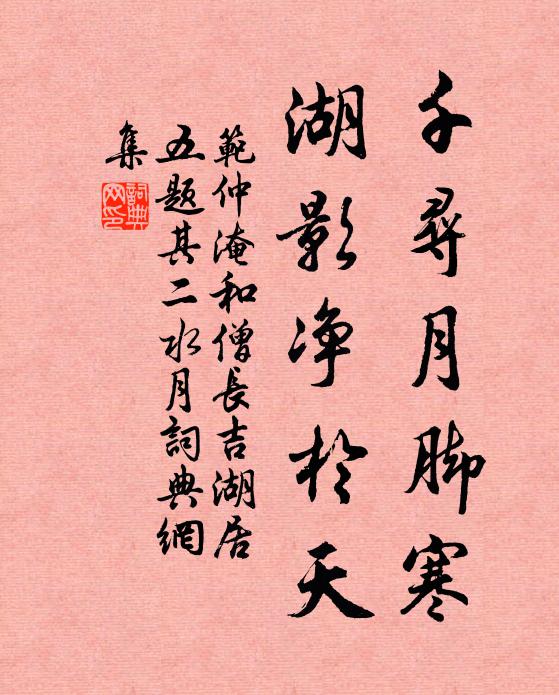 千尋月脚寒
湖影净於天
範仲淹和僧長吉湖居
五题其二水月詞典網
集
詞典
网印